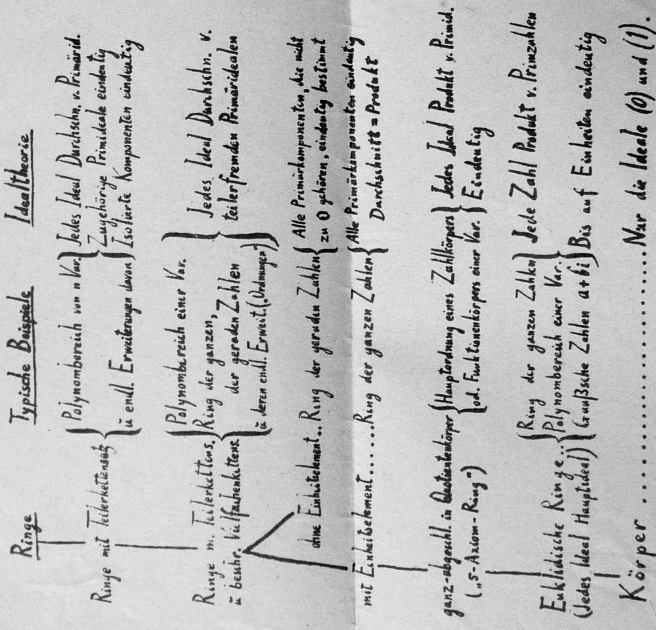 Ringe
Typische Beispiele
Idealtheorie
Ringe mit Teilerkettensatz
Polynombereich von n Var.
u endl. Erweiterungen davon
Jedes Ideal Durchschn. v. Primärid.
Zugehörige Primideale eindeutig
Isolierte Komponenten eindeutig
Ringe m. Teilerkettens.
u beschr. Vielfachenkettens.
Polynombereich einer Var.
Ring der ganzen,
der geraden Zahlen
u deren endl. Erweit. („Ordnungen“)
Jedes Ideal Durchschn. v.
teilerfremden Primäridealen
ohne Einheitselement... Ring der geraden Zahlen
Alle Primärkomponenten, die nicht
zu 0 gehören, eindeutig bestimmt
mit Einheitselement...... Ring der ganzen Zahlen
Alle Primärkomponenten eindeutig
Durchschnitt = Produkt
ganz-abgeschl. in Quotientenkörper
(„5-Axiom-Ring“)
Hauptordnung eines Zahlkörpers
od. Funktionenkörpers einer Var.
Jedes Ideal Produkt v. Primid.
Eindeutig
Euklidische Ringe...
(Jedes Ideal Hauptideal)
Ring der ganzen Zahlen
Polynombereich einer Var.
Gaußsche Zahlen a+bi
Jede Zahl Produkt v. Primzahlen
Bis auf Einheiten eindeutig
Körper ........................ Nur die Ideale (0) und (1).